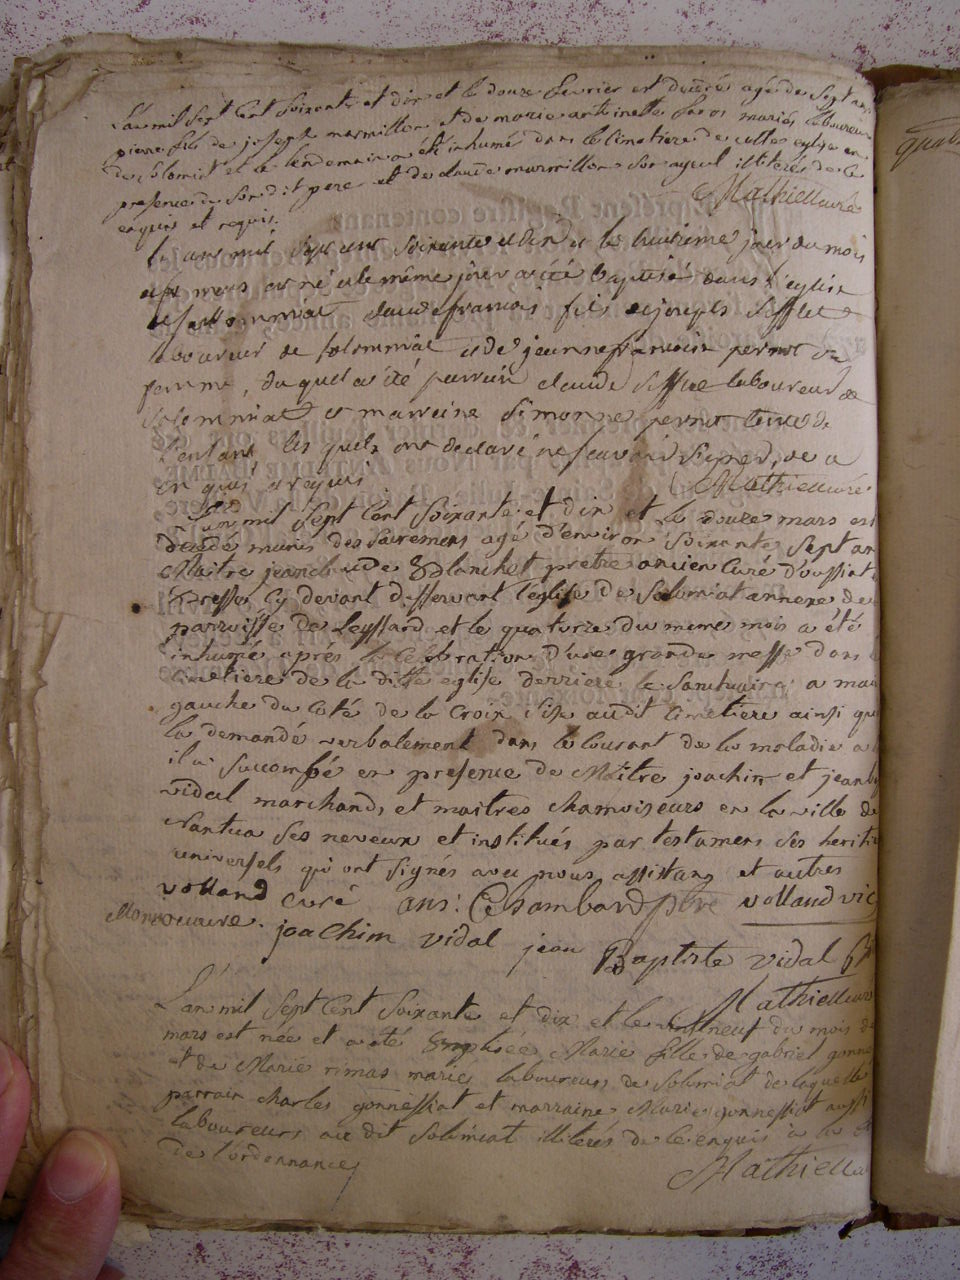 L'an mil sept cent soixante et dix et le douze fevrier est decedé agé de sept ans
pierre fils de joseph marmillon et de marie antoinette mariés laboureurs
de Solomiat et le lendemain a été inhumé dans le cimetiere de cette eglise en
presence de son dit pere et de claude marmillon son ayeul illiterés de ce
enquis et requis. Mathieu curé
L'an mil sept cent soixante et dix et le huitieme jour du mois
de mars est né et le même jour a été baptisé dans l'eglise
de Solommiat claude francois fils de joseph Sifflet
laboureur de solommiat et de jeanne francoise pernot sa
femme, du quel a été parrain claude Sifflet laboureur de
Solommiat et marreine Simonne pernot tente de
l'enfant les quels ont declaré ne scavoir signer, de ce
enquis et requis Mathieu curé
L'an mil sept cent soixante et dix et le douze mars est
decedé munis des sacremens agé d'environ soixante sept ans
Maitre jean claude Blanchet pretre ancien curé d'oussiat
cy devant desservant l'eglise de Solomiat annexe de
parroisse de Leyssard et le quatorze du meme mois a été
inhumé aprés la celebration d'une grande messe dans
cimetiere de la ditte eglise derriere le sanctuaire a main
gauche du coté de la croix sise audit cimetiere ainsi que
la demandé verbalement dans le courant de la maladie a
il a succombé en presence de Maitre joachim et jean
vidal marchands et maitres chamoiseurs en la ville de
Nantua ses neveux et institués par testamens ses heritiers
universels qui ont signés avec nous assistans et autres
volland curé ans: Chambard ptre volland vic
joachim vidal jean Baptiste vidal
Mathieu curé
L'an mil sept cent soixante et dix et le vingt neuf du mois de
mars est née et a été baptisée Marie fille de gabriel
et de Marie rimas mariés laboureurs de Solomiat de laquelle
parrain charles gonnessiat et marraine Marie gonnessiat aussi
laboureurs au dit Solomiat illiterés de ce enquis a la
de l'ordonnance
Mathieu